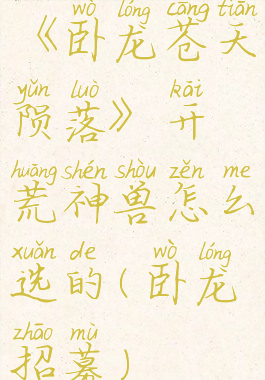 wò lóng cāng tiān
《卧龙苍天
yǔn luò kāi
陨落》开
huāng shén shòu zěn me
荒神兽怎么
xuǎn de wò lóng
选的(卧龙
zhāo mù
招募)